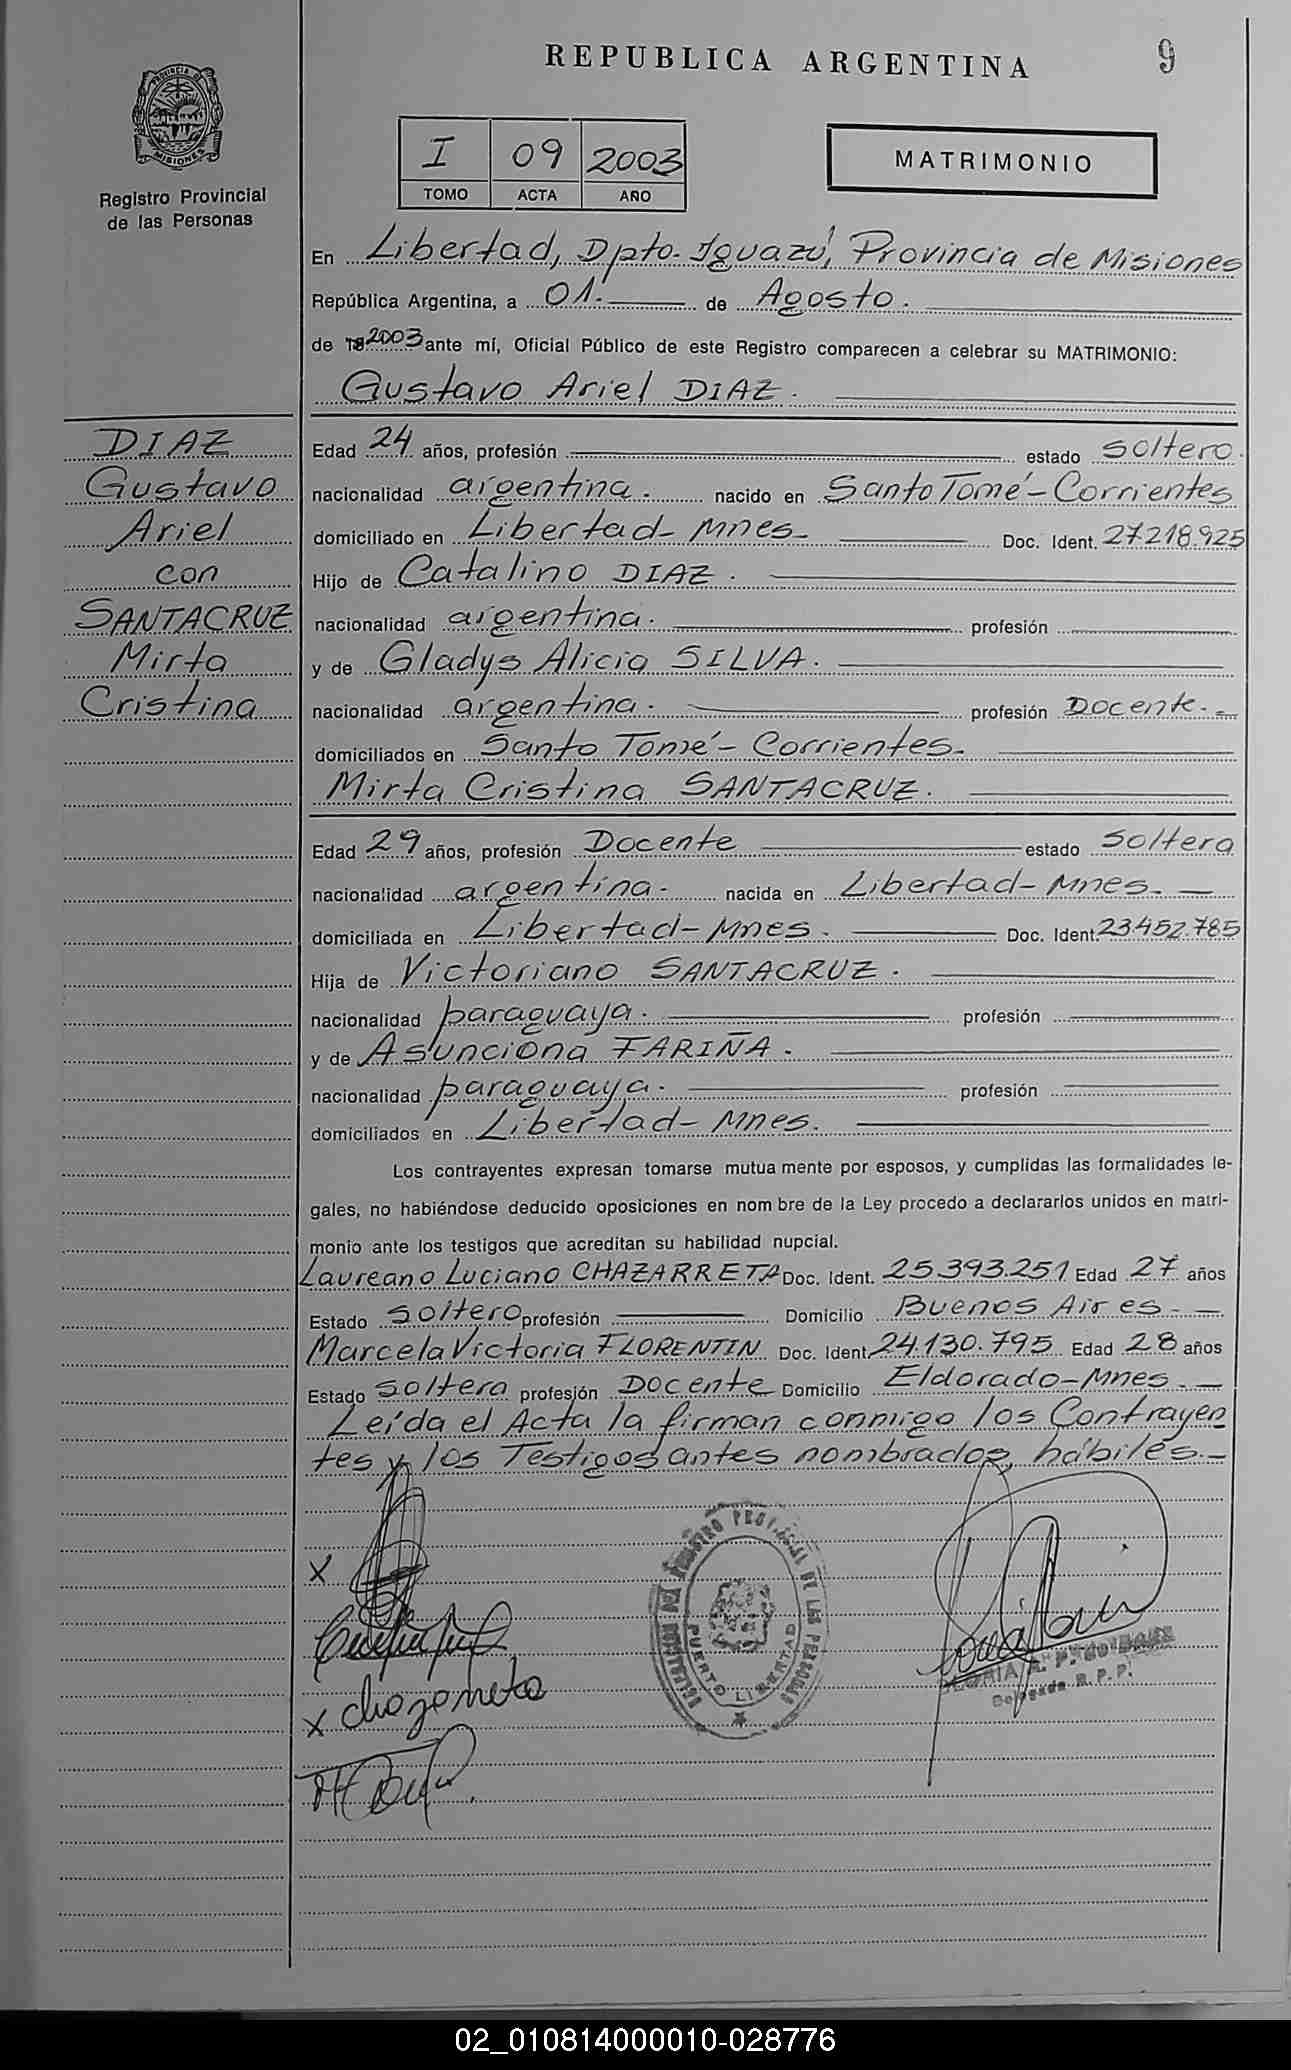 REPUBLICA ARGENTINA
9
PROVINCIA DE
MISIONES
Registro Provincial
de las Personas
I 09 2003
TOMO ACTA AÑO
MATRIMONIO
En Libertad, Dpto. Iguazú, Provincia de Misiones
República Argentina, a 01.- de Agosto.
de 2003 ante mí, Oficial Público de este Registro comparecen a celebrar su MATRIMONIO:
Gustavo Ariel DIAZ.
DIAZ
Gustavo
Ariel
con
SANTACRUZ
Mirta
Cristina
Edad 24 años, profesión estado soltero.
nacionalidad argentina. nacido en Santo Tomé - Corrientes
domiciliado en Libertad - Mnes- Doc. Ident. 27218.925
Hijo de Catalino DIAZ.
nacionalidad argentina. profesión
y de Gladys Alicia SILVA.
nacionalidad argentina. profesión Docente.-
domiciliados en Santo Tomé - Corrientes.
Mirta Cristina SANTACRUZ.
Edad 29 años, profesión Docente estado soltera
nacionalidad argentina. nacida en Libertad - Mnes.-
domiciliada en Libertad - Mnes. Doc. Ident. 23.452.785
Hija de Victoriano SANTACRUZ.
nacionalidad paraguaya. profesión
y de Asunciona FARIÑA.
nacionalidad paraguaya. profesión
domiciliados en Libertad - Mnes.
Los contrayentes expresan tomarse mutua mente por esposos, y cumplidas las formalidades le-
gales, no habiéndose deducido oposiciones en nom bre de la Ley procedo a declararlos unidos en matri-
monio ante los testigos que acreditan su habilidad nupcial.
Laureano Luciano CHAZARRETA Doc. Ident. 25.393.251 Edad 27 años
Estado soltero profesión Domicilio Buenos Aires.-
Marcela Victoria FLORENTIN Doc. Ident. 24.130.795 Edad 28 años
Estado soltera profesión Docente Domicilio Eldorado - Mnes.-
Leída el Acta la firman conmigo los Contrayen
tes y los Testigos antes nombrados, hábiles.-
x
REGISTRO PROVINCIAL DE LAS PERSONAS
PUERTO LIBERTAD
x chazarreta
Delegada R.P.P.
02_010814000010-028776